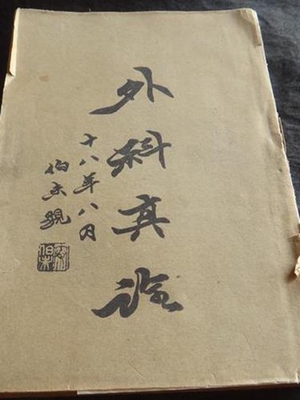 外科真詮
十八年八月
伯未